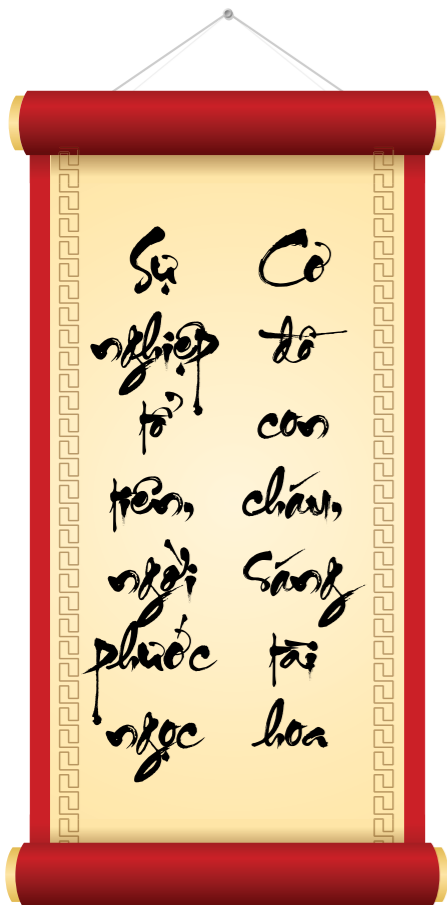 Sự nghiệp tổ tiên, ngời phước ngọc
Cơ đồ con cháu, sáng tài hoa